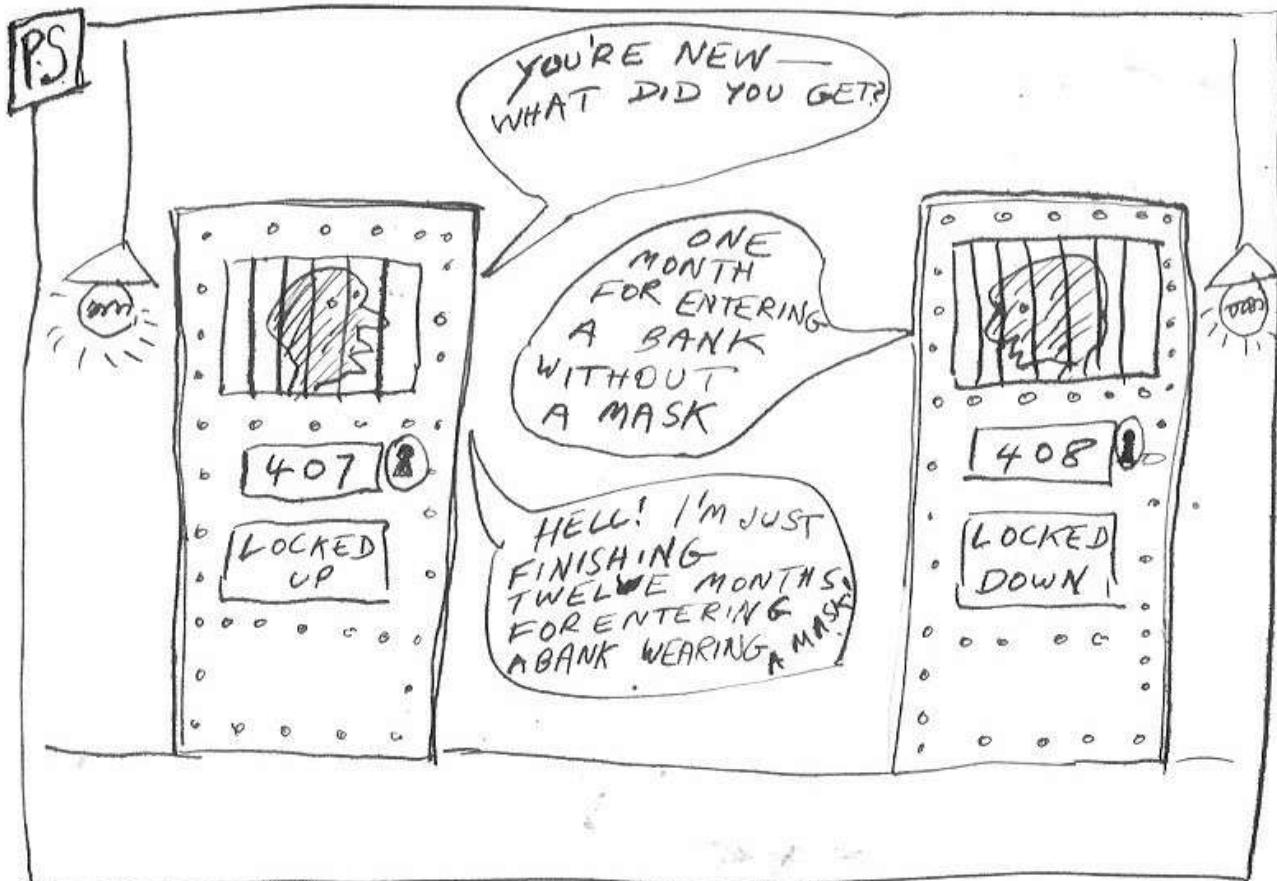 P.S
YOU'RE NEW —
WHAT DID YOU GET?
ONE
MONTH
FOR ENTERING
A BANK
WITHOUT
A MASK
HELL! I'M JUST
FINISHING
TWELVE MONTHS
FOR ENTERING
A BANK WEARING A MASK!
407
LOCKED
UP
408
LOCKED
DOWN